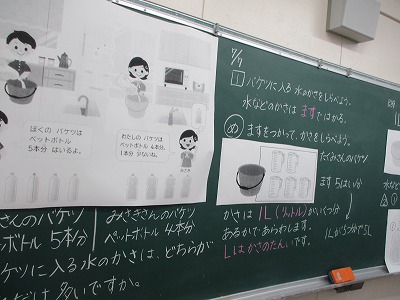 ぼくの バケツは
ペットボトル
5本分 はいるよ。
わたしの バケツは
ペットボトル 4本分、
1本分 少ないね。
さんのバケツ
ボトル 5本分
みさきさんのバケツ
ペットボトル 4本分
ケツに入る水のかさは、どちらが
だけ多いですか。
7/7
1 バケツに入る 水のかさをしらべよう。
水などのかさは ますではかる。
め ますをつかって、かさをしらべよう。
たくみさんのバケツ
ます 5はい分
↓
1Lが5つ分で5L
かさは 1L(リットル)がいくつ分
あるかであらわします。
Lはかさのたんいです。
水など